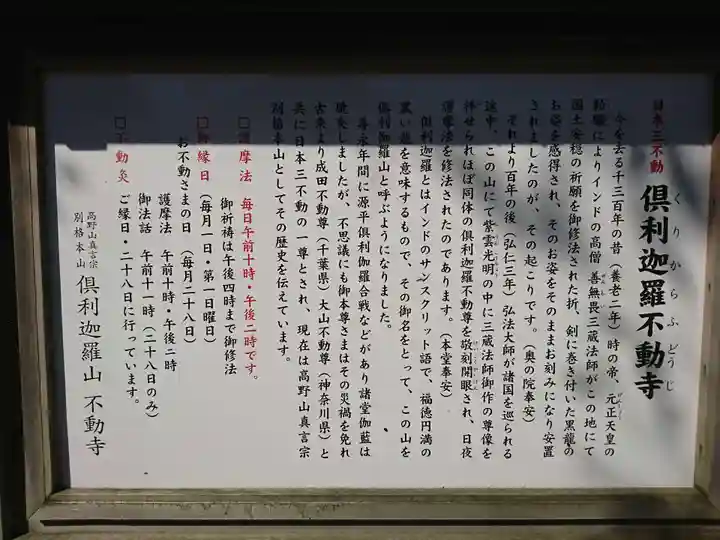 日本三不動
倶利迦羅不動寺
くりからふどうじ
今を去る千三百年の昔（養老二年）時の帝、元正天皇の
勅願によりインドの高僧 善無畏三蔵法師がこの地にて
国土安穏の祈願を御修法された折、剣に巻き付いた黒龍の
お姿を感得され、そのお姿をそのままお刻みになり安置
されましたのが、その起こりです。（奥の院奉安）
それより百年の後（弘仁三年）弘法大師が諸国を巡られる
途中、この山にて紫雲光明の中に三蔵法師御作の尊像を
拝せられほぼ同体の倶利迦羅不動尊を敬刻開眼され、日夜
護摩法を修法されたのであります。（本堂奉安）
倶利迦羅とはインドのサンスクリット語で、福徳円満の
黒い龍を意味するもので、その御名をとって、この山を
倶利迦羅山と呼ぶようになりました。
寿永年間に源平倶利伽羅合戦などがあり諸堂伽藍は
焼失しましたが、不思議にも御本尊さまはその災禍を免れ
古来より成田不動尊（千葉県）大山不動尊（神奈川県）と
共に日本三不動の一尊とされ、現在は高野山真言宗
別格本山としてその歴史を伝えています。
□護摩法 毎日午前十時・午後二時です。
御祈祷は午後四時まで御修法
□御縁日（毎月一日・第一日曜日）
お不動さまの日（毎月二十八日）
護摩法 午前十時・午後二時
御法話 午前十一時（二十八日のみ）
□不動灸 ご縁日・二十八日に行っています。
高野山真言宗
別格本山
倶利迦羅山 不動寺